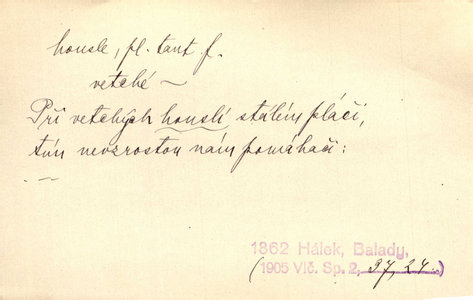 housle, pl. tant. f.
vetché ~
Při vetchých houslí stálém pláči,
tón nevzrostou nám pomáhači:
. —
1862 Hálek, Balady,
(1905 Vlč. Sp. 2, 37, 24.)